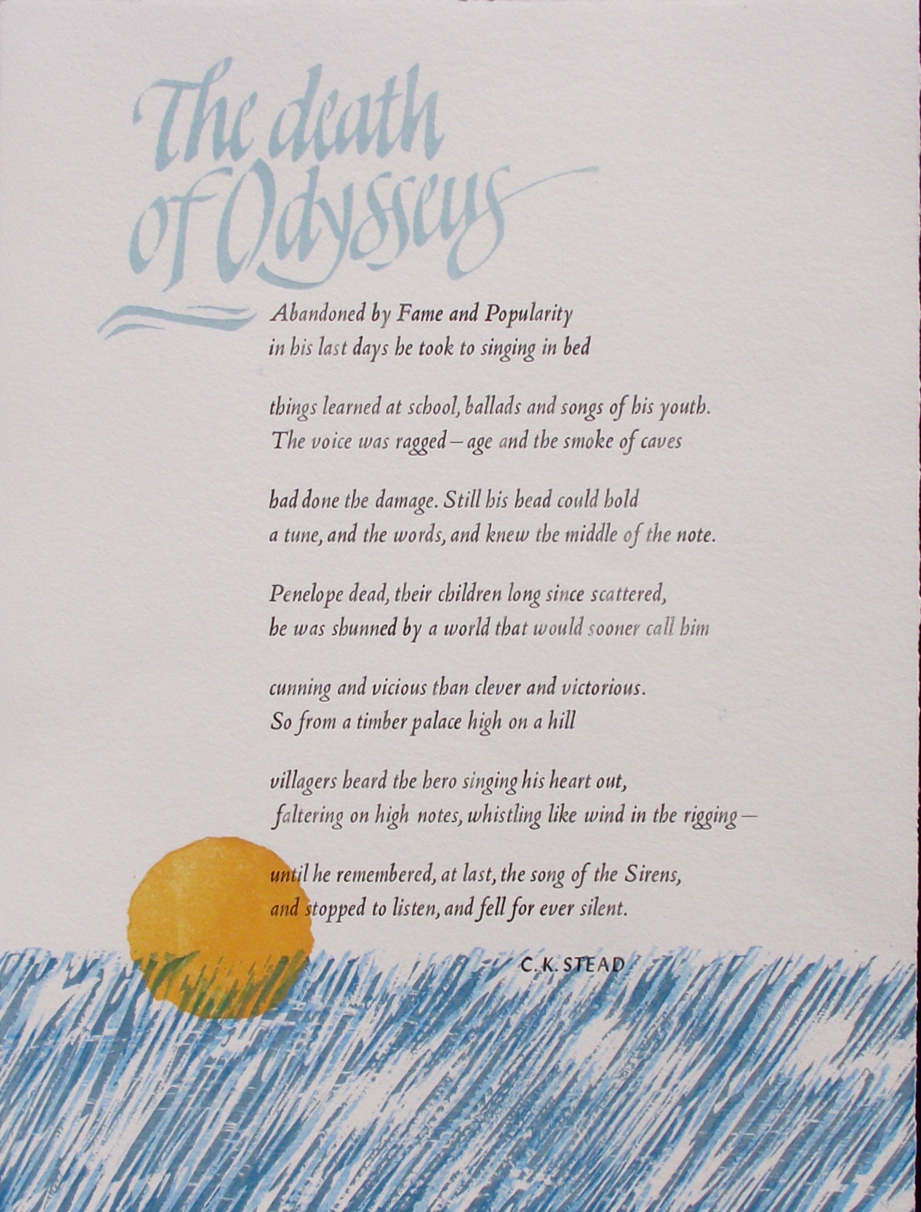 The death
of Odysseus
Abandoned by Fame and Popularity
in his last days he took to singing in bed
things learned at school, ballads and songs of his youth.
The voice was ragged — age and the smoke of caves
had done the damage. Still his head could hold
a tune, and the words, and knew the middle of the note.
Penelope dead, their children long since scattered,
he was shunned by a world that would sooner call him
cunning and vicious than clever and victorious.
So from a timber palace high on a hill
villagers heard the hero singing his heart out,
faltering on high notes, whistling like wind in the rigging —
until he remembered, at last, the song of the Sirens,
and stopped to listen, and fell for ever silent.
C. K. STEAD